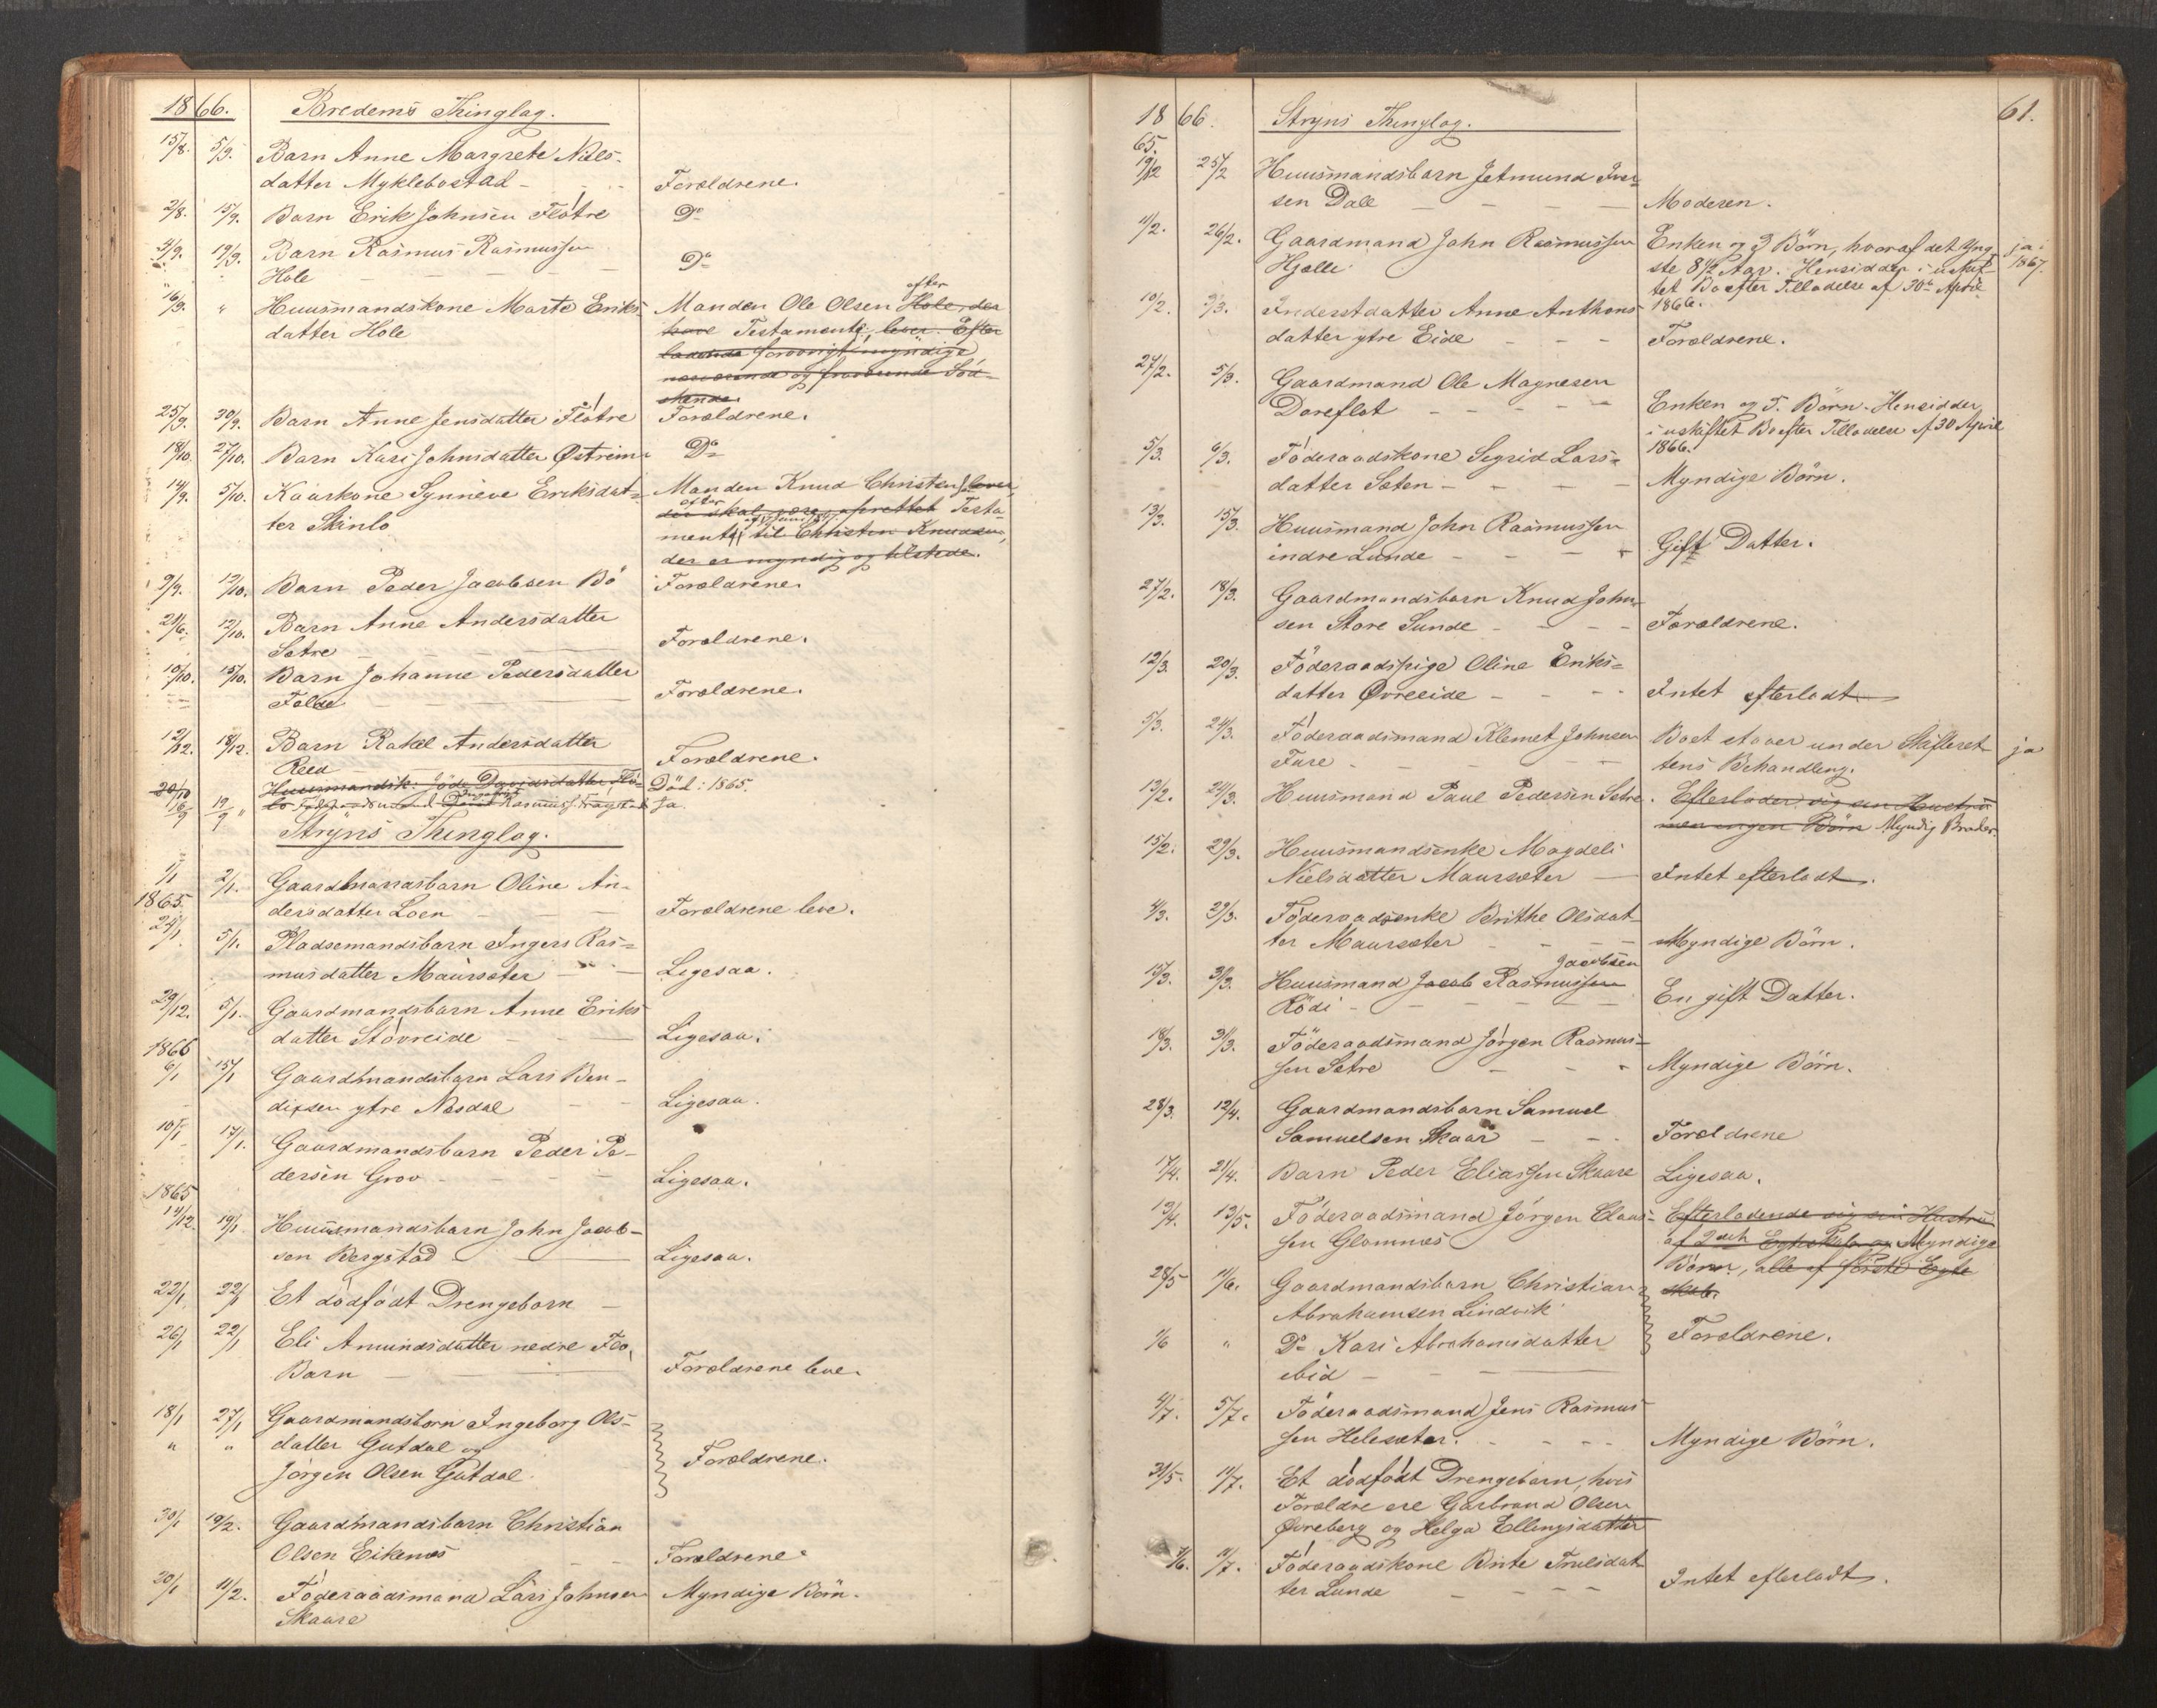 1866. Bredems Thinglag.
15/8. 5/9. Barn Anne Margrete Niels-
datter Myklebostad - Forældrene.
2/8. 15/9. Barn Erik Johnsen Flötre Do
4/9. 19/9. Barn Rasmus Rasmussen
Hole Do
16/9. " Huusmandskone Marte Eriks- Manden Ole Olsen Hole, der
efter
datter Hole have Testamente, lever. Efter
ladende forøvrigt myndige
nærværende og fraværende Söd-
skende.
25/9. 30/9. Barn Anne Jensdatter Flötre Forældrene.
18/10. 27/10. Barn Kari Johnsdatter Østrem Do
14/9. 5/10. Kaarkone Synneve Eriksdat- Manden Knud Christens. lever,
efter
ter Skinlo der skal være oprettet Testa-
mente til Christen Knudsen,
der er myndig og tilstede.
9/9. 12/10. Barn Peder Jacobsen Bö Forældrene.
21/6. 12/10. Barn Anne Andersdatter
Sætre Forældrene.
10/10. 15/10. Barn Johanne Pedersdatter
Folde Forældrene.
12/12. 18/12. Barn Rakel Andersdatter
Reed Forældrene.
20/10 Huusmandsk. Jöde Davidsdatter Flo- Död: 1865.
16/9 19/9 Rasmuss. ja.
Stryns Thinglag.
1/1 2/1. Gaardmandsbarn Oline An-
1865. dersdatter Loen Forældrene leve.
24/1 5/1. Pladsemandsbarn Ingers Ras-
musdatter Maursæter Ligesaa.
29/12. 5/1. Gaardmandsbarn Anne Eriks
datter Stövreide Ligesaa.
1866
6/1 15/1 Gaardmandsbarn Lars Ben-
dixsen ytre Nesdal Ligesaa.
10/1 17/1. Gaardmandsbarn Peder Pe-
dersen Grov Ligesaa.
1865
14/12. 19/1 Huusmandsbarn John Jacob-
sen Bergstad Ligesaa.
22/1 22/1 Et dödfödt Drengebarn
26/1 22/1 Eli Amundsdatter nedre Flo,
Barn Forældrene leve.
18/1 27/1 Gaardmandsbørn Ingeborg Ols-
" " datter Gutdal og
Jörgen Olsen Gutdal. Forældrene.
30/1 10/2. Gaardmandsbarn Christian
Olsen Eikenes Forældrene
20/1 11/2. Föderaadsmand Lars Johnsen Myndige Börn.
Skaare
61.
1866. Stryns Thinglag.
65.
19/12 25/2 Huusmandsbarn Jetmund Iver-
sen Dale Moderen.
11/2. 26/2. Gaardmand John Rasmussen Enken og 3 Börn, hvoraf det Yng- ja
Hjelle ste 8 1/2 Aar. Hensidder i uskif- 1867.
tet Bo efter Tilladelse af 30te April
1866.
10/2. 3/3. Inderstdatter Anne Anthons
datter ytre Eide Forældrene.
27/2. 5/3. Gaardmand Ole Magnesen
Dareflot Enken og 5. Börn. Hensidder
i uskiftet Bo efter Tilladelse af 30 April
1866.
5/3. 6/3. Föderaadskone Sigrid Lars-
datter Sæten Myndige Börn.
13/3. 15/3. Huusmand John Rasmussen
indre Sunde Gift Datter.
27/2. 18/3. Gaardmandsbarn Knud John-
sen Store Sunde Forældrene.
12/3. 20/3. Föderaadspige Oline Eriks-
datter Øvreeide Intet efterladt
5/3. 24/3. Föderaadsmand Klemet Johnsen Boet staaer under Skifteret- ja
Fure tens Behandling.
13/2. 24/3. Huusmand Paul Pedersen Sætre. Efterlader sig en Hustru
men ingen Börn Myndig Broder.
15/2. 29/3. Huusmandsenke Magdeli
Nielsdatter Maursæter Intet efterladt.
4/3. 29/3. Föderaadsenke Brithe Olsdat-
ter Maursæter Myndige Börn.
Jacobsen
15/3. 31/3. Huusmand Jacob Rasmussen
Rödi En gift Datter.
18/3. 31/3. Föderaadsmand Jörgen Rasmus-
sen Sætre Myndige Börn.
28/3. 12/4. Gaardmandsbarn Samuel
Samuelsen Skaar Forældrene
17/4. 21/4. Barn Peder Eliassen Skaare Ligesaa.
13/4. 13/5. Föderaadsmand Jörgen Claus- Efterladende sig en Hustru
sen Glomnes af 2det Egteskab og Myndige
Börn, alle af förste Egte
skab.
28/5 11/6. Gaardmandsbarn Christian
Abrahamsen Lindvik
1/6 " Do Kari Abrahamsdatter Forældrene.
ibid
4/7. 5/7. Föderaadsmand Jens Rasmus-
sen Helesæter. Myndige Börn.
31/5. 11/7. Et dödfödt Drengebarn, hvis
Forældre ere Garbrand Olsen
Øvreberg og Helga Ellingsdatter
7/6. 11/7. Föderaadskone Brite Trulsdat-
ter Lunde Intet efterladt.